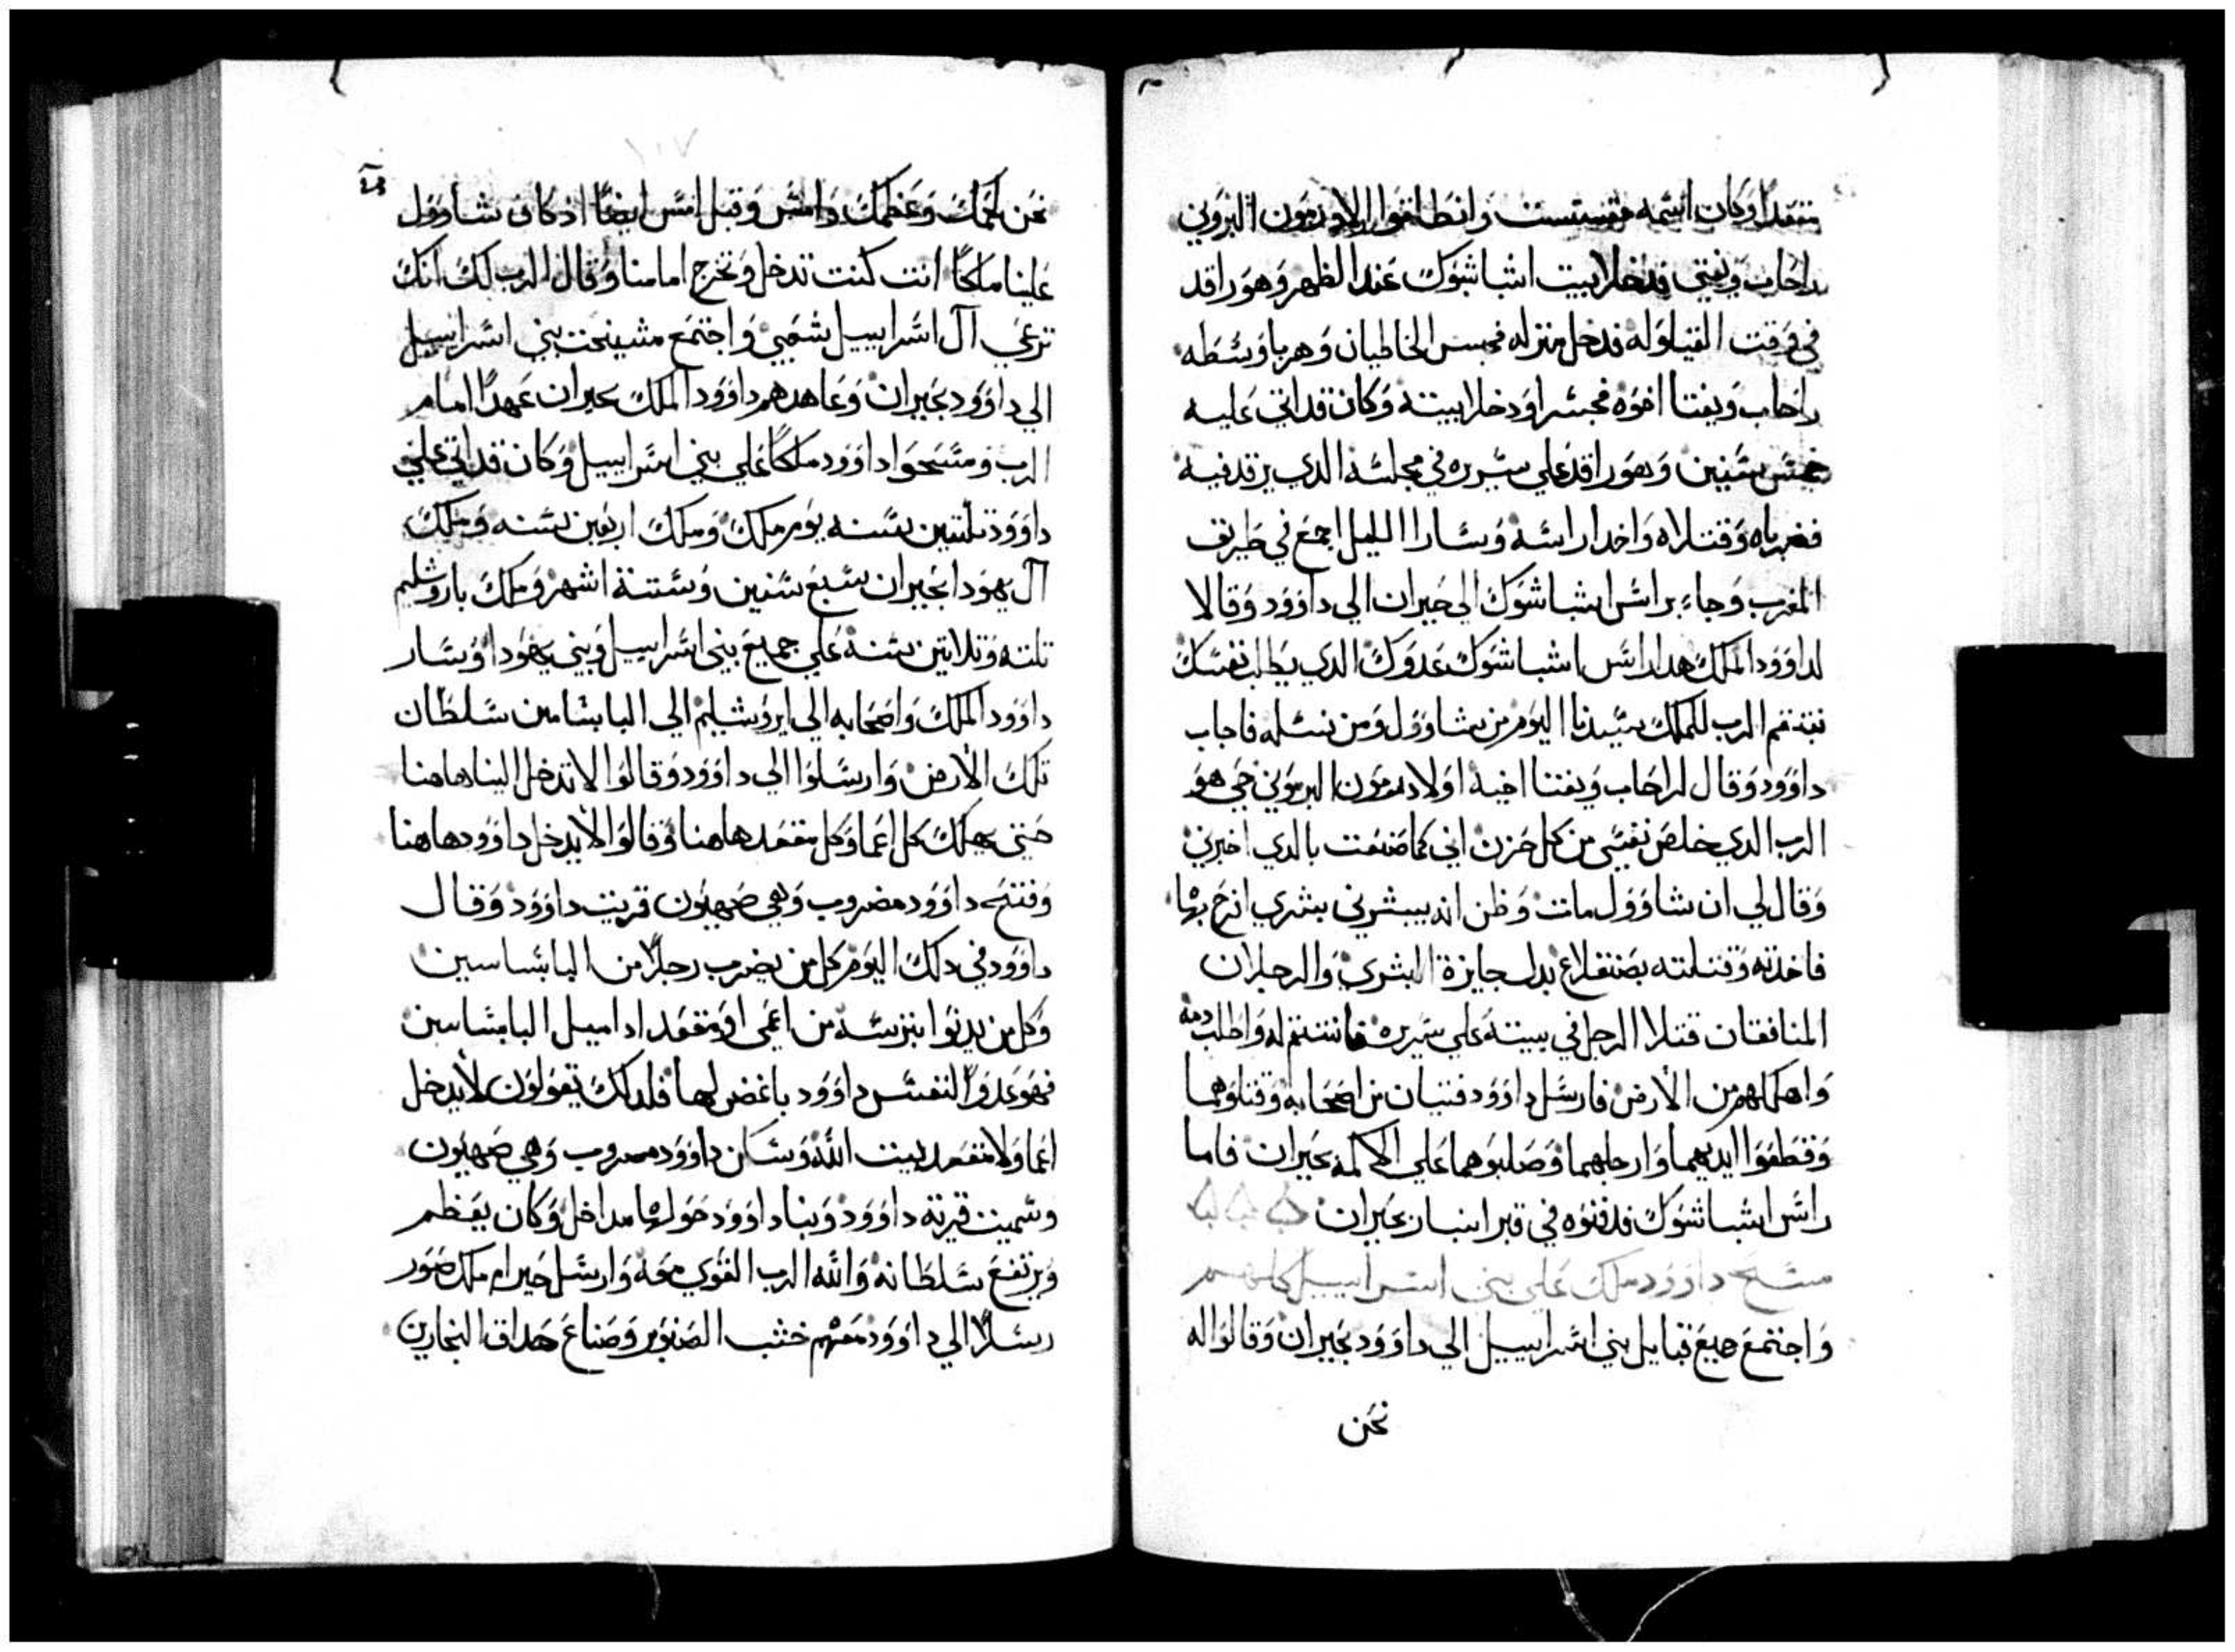 مقعدا وكان اسمه مفستست وانطلقوا اولاد رمون البروني
راحاب ونعتي فدخلا بيت اشباشوك عند الظهر وهو راقد
في وقت القيلوله فدخل منزله فحبس الخاطيان وهربا وسطه
راحاب ويغتا اخوه فحبسرا ودخلا بيته وكان قد اتى عليه
خمس سنين وهو راقد علي سريره في مجلسه الدي يرقد فيه
فضرباه وقتلاه واخدا راسه وسارا الليل اجمع في طريق
المغرب وجاء براس اشباشوك الي حبران الي داوود وقالا
لداوود الملك هدا راس اشباشوك عدوك الدي يطلب نفسك
نقم الرب للملك سيدنا اليوم من شاوول ومن نسله فاجاب
داوود وقال لراحاب ويغتا اخيه اولاد رمون البروني حي هو
الرب الدي خلص نفسي من كل حزن اني كما صنعت بالدي اخبرني
وقال لي ان شاوول مات وظن انه يبشرني ببشري افرح بها
فاخدته وقتلته بصنقلاع بدل جايزة البشري والرجلان
المنافقان قتلا الرجل في بيته علي سريره فانتقم له واطلب دمه
واهلكهم من الأرض فارسل داوود فتيان من اصحابه وقتلوهما
وقطعوا ايديهما وارجلهما وصلبوهما علي الاكمه بحبران فاما
راس اشباشوك فدفنوه في قبر ابنار بحبران
مسح داوود ملك علي بني اسراييل كلهم
واجتمع جميع قبايل بني اسراييل الي داوود بحبران وقالوا له
نحن
١٠٧
نحن لحمك وعظمك وامس وقبل امس ايضا اذ كان شاوول
علينا ملكا انت كنت تدخل وتخرج امامنا وقال الرب لك انك
ترعي آل اسراييل شعبي واجتمع مشيخت بني اسراييل
الي داوود بحبران وعاهدهم داوود الملك بحبران عهدا امام
الرب ومسحوا داوود ملكا علي بني اسراييل وكان قد اتي علي
داوود تلتين سنه يوم ملك وملك اربعين سنه وملك
آل يهودا بحبران سبع سنين وستة اشهر وملك باروشليم
تلته وتلاتين سنه علي جميع بني اسراييل وبني يهودا وسار
داوود الملك واصحابه الي ايروشليم الي اليابسامين سلطان
تلك الأرض وارسلوا الي داوود وقالوا لا تدخل الينا هاهنا
حتي يهلك كل اعما وكل مقعد هاهنا وقالوا لأيدخل داوود هاهنا
وفتح داوود مضروب وهي صهيون قريت داوود وقال
داوود في دلك اليوم كل من يضرب رجلا من اليابساسين
وكل من يدنوا بترسه من اعمي او مقعد اداميل اليابساسين
فهو عدوا لنفس داوود باغض لها فلدلك تقولون لأيدخل
اعما ولا مقعد بيت الله وسكن داوود مصروب وهي صهيون
وسميت قرية داوود وبنا داوود حولها مداخل وكان يعظم
ويرتفع سلطانه والله الرب القوي معه وارسل حيرام ملك صور
رسلا الي داوود معهم خشب الصنوبر وصناع حداق النجارين